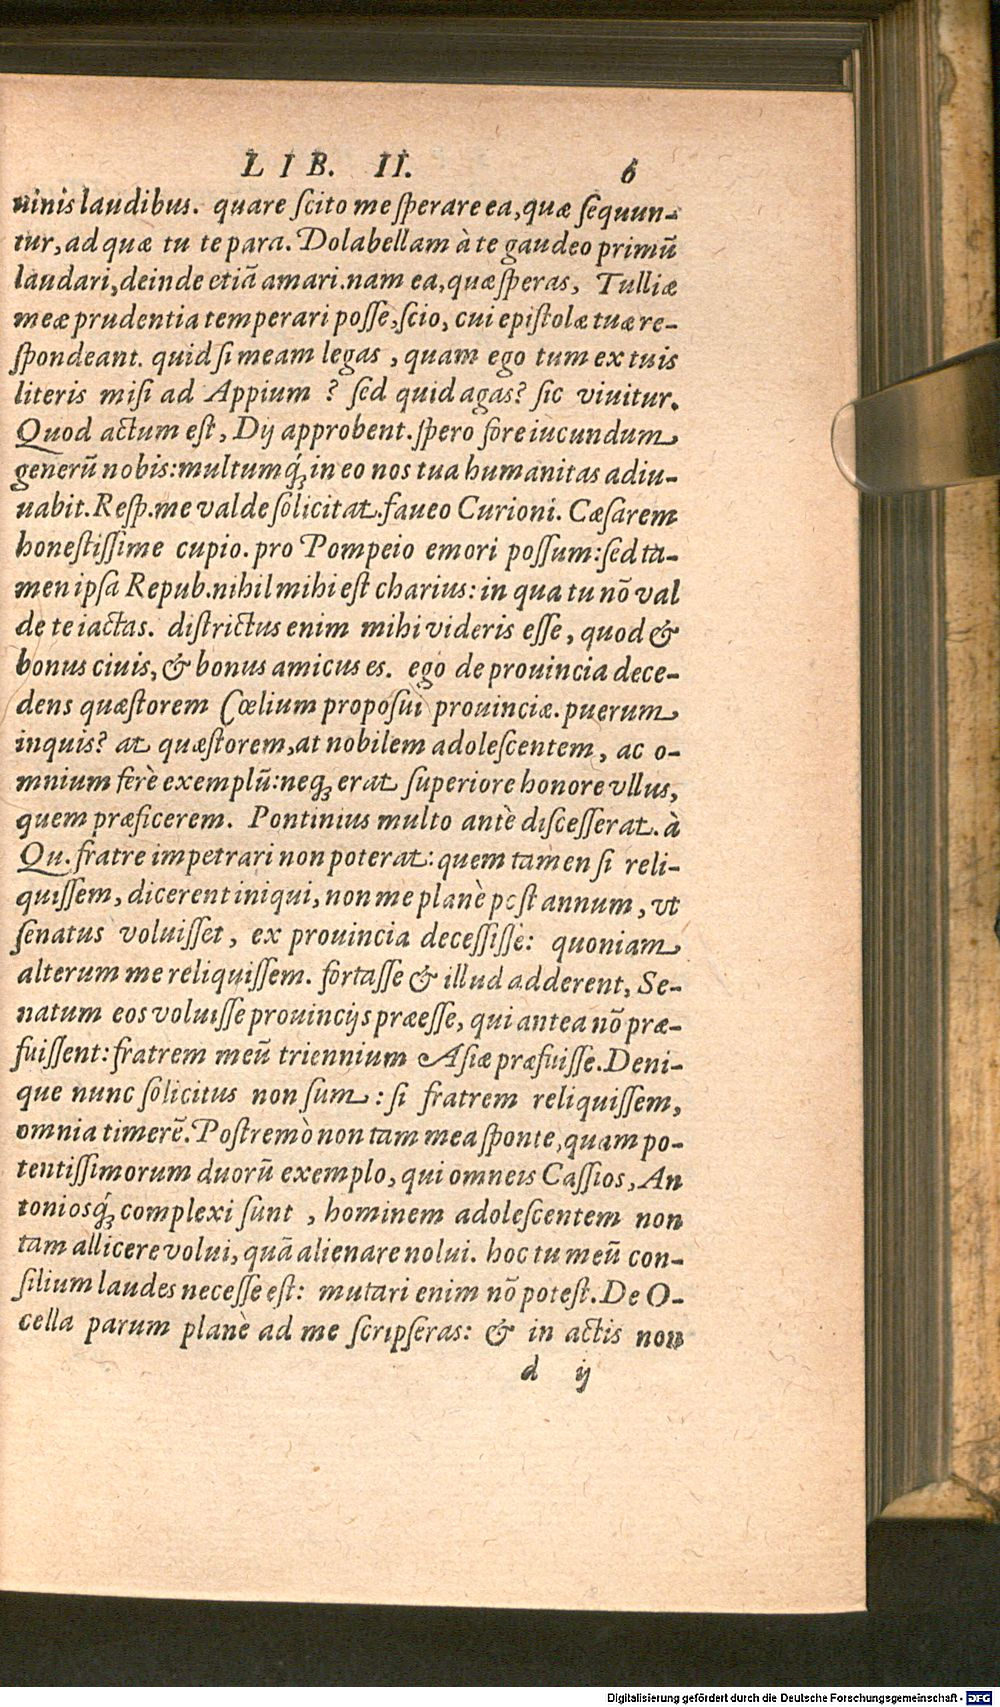 LIB. II. 6
uinis laudibus. quare scito me sperare ea, quæ sequun-
tur, ad quæ tu te para. Dolabellam à te gaudeo primū
laudari, deinde etiā amari. nam ea, quæ speras, Tulliæ
meæ prudentia temperari posse, scio, cui epistolæ tuæ re-
spondeant. quid si meam legas, quam ego tum ex tuis
literis misi ad Appium? sed quid agas? sic viuitur.
Quod actum est, Dij approbent. spero fore iucundum
generū nobis: multumq́; in eo nos tua humanitas adiu-
uabit. Resp. me valde solicitat. faueo Curioni. Cæsarem
honestissime cupio. pro Pompeio emori possum: sed ta-
men ipsa Repub. nihil mihi est charius: in qua tu nō val
de te iactas. districtus enim mihi videris esse, quod &
bonus ciuis, & bonus amicus es. ego de prouincia dece-
dens quæstorem Cœlium proposui prouinciæ. puerum
inquis? at quæstorem, at nobilem adolescentem, ac o-
mnium ferè exemplū: neq; erat superiore honore vllus,
quem præficerem. Pontinius multo antè discesserat. à
Qu. fratre impetrari non poterat: quem tamen si reli-
quissem, dicerent iniqui, non me planè post annum, vt
senatus voluisset, ex prouincia decessisse: quoniam
alterum me reliquissem. fortasse & illud adderent, Se-
natum eos voluisse prouincijs præesse, qui antea nō præ-
fuissent: fratrem meū triennium Asiæ præfuisse. Deni-
que nunc solicitus non sum: si fratrem reliquissem,
omnia timerē. Postremò non tam mea sponte, quam po-
tentissimorum duorū exemplo, qui omneis Cassios, An
toniosq́; complexi sunt, hominem adolescentem non
tam allicere volui, quā alienare nolui. hoc tu meū con-
silium laudes necesse est: mutari enim nō potest. De O-
cella parum planè ad me scripseras: & in actis non
d ij
Digitalisierung gefördert durch die Deutsche Forschungsgemeinschaft - DFG